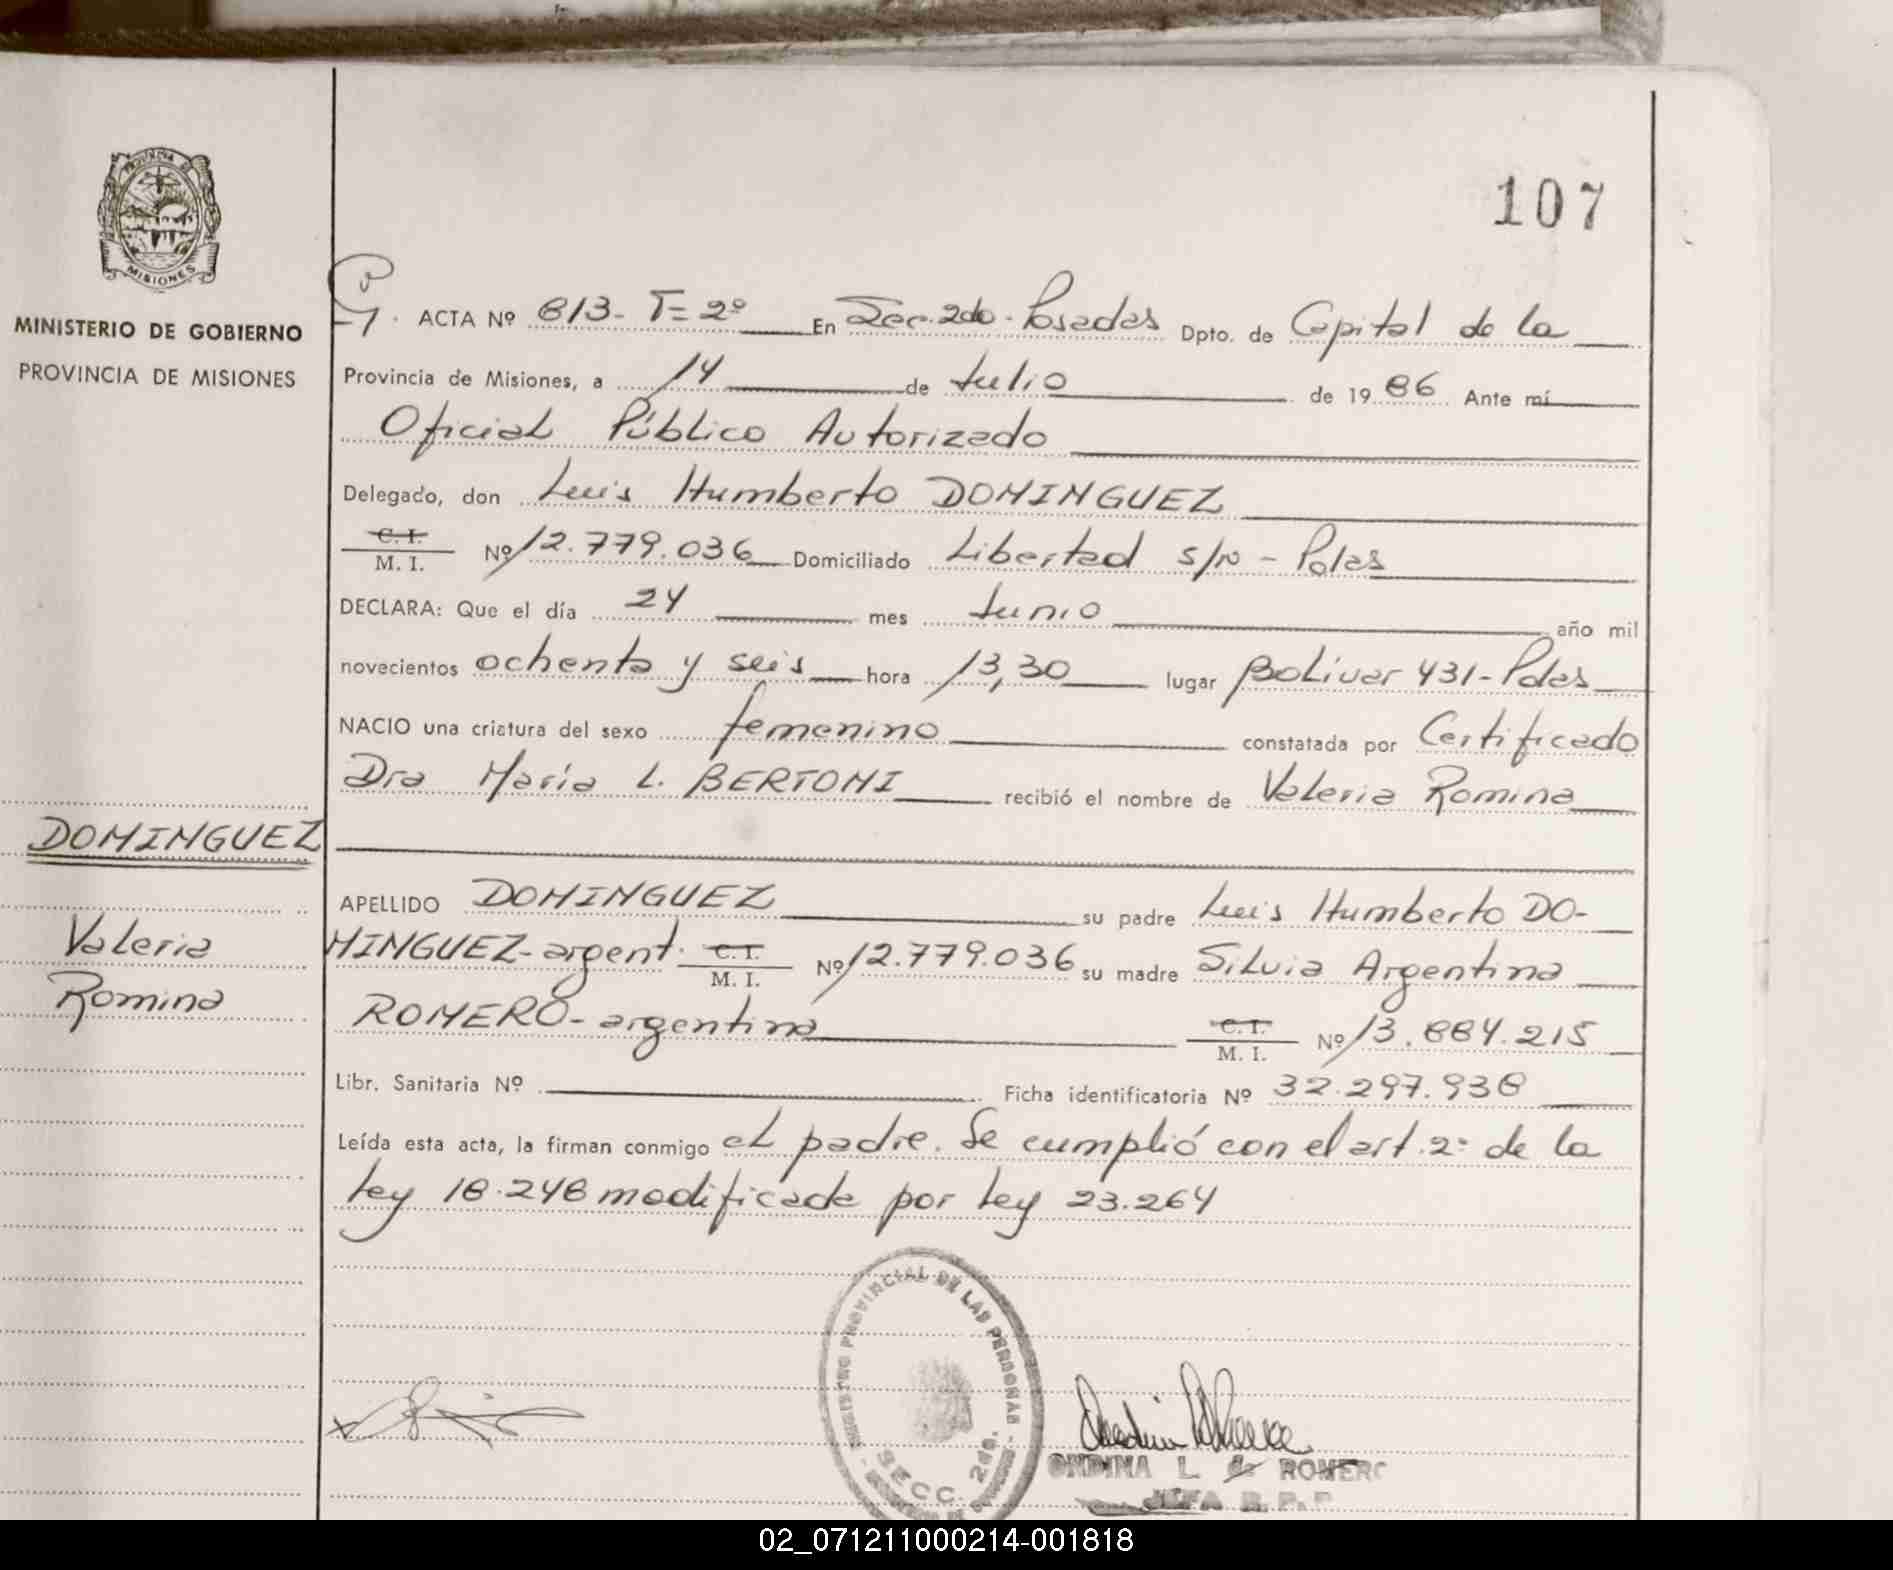 107
PROVINCIA DE
MISIONES
MINISTERIO DE GOBIERNO
PROVINCIA DE MISIONES
ACTA Nº 813- T= 2º En Sec. 2do - Posadas Dpto. de Capital de la
Provincia de Misiones, a 14 de Julio de 19 86 Ante mí
Oficial Público Autorizado
Delegado, don Luis Humberto DOMINGUEZ
C. I.
M. I. Nº 12.779.036 Domiciliado Libertad s/n - Pdas
DECLARA: Que el día 24 mes Junio año mil
novecientos ochenta y seis hora 13,30 lugar Bolivar 431 - Pdas
NACIO una criatura del sexo femenino constatada por Certificado
Dra María L. BERTONI recibió el nombre de Valeria Romina
DOMINGUEZ
Valeria
Romina
APELLIDO DOMINGUEZ su padre Luis Humberto DO-
MINGUEZ - argent. C. I. M. I. Nº 12.779.036 su madre Silvia Argentina
ROMERO - argentina C. I. M. I. Nº 13.884.215
Libr. Sanitaria Nº Ficha identificatoria Nº 32.297.938
Leída esta acta, la firman conmigo el padre. Se cumplió con el art. 2º de la
ley 18.248 modificada por ley 23.264
REGISTRO PROVINCIAL DE LAS PERSONAS
SECC. 2da.
ONDINA L. de ROMERO
JEFA R. P. P.
02_071211000214-001818